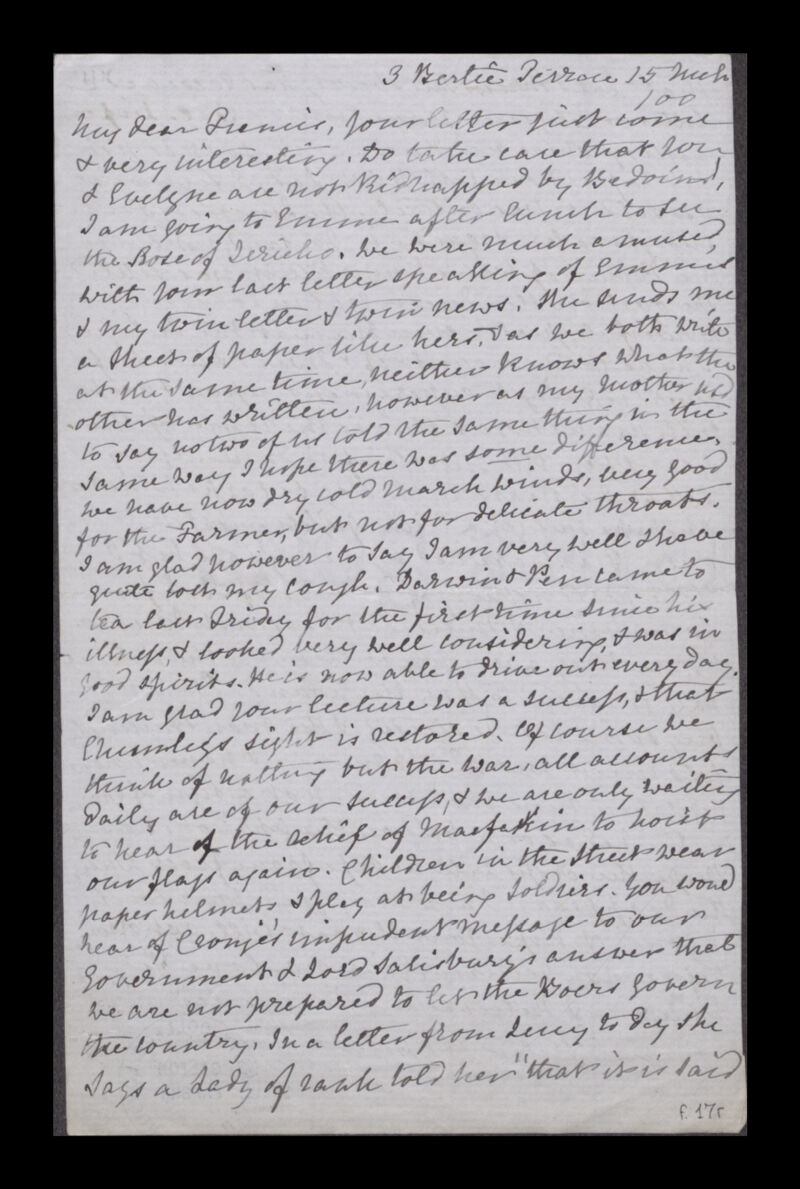 3 Bertie Terrace 15 Mch
/00
My dear Francis, your letter just come
& very interesting. Do take care that you
& Evelyne are not Kidnapped by Bedoins!,
I am going to Emma after lunch to see
the Rose of Jericho. We were much amused,
with your last letter speaking of Emma's
& my twin letter & twin news. She sends me
a sheet of paper like hers, & as we both write
at the same time, neither knows what the
other has written, however as my Mother used
to say no two of us told the same thing in the
same way I hope there was some difference.
we have now dry cold March winds, very good
for the Farmer, but not for delicate throats.
I am glad however to say I am very well & have
quite lost my Cough. Darwin & Pen came to
tea last Friday for the first time since his
illness, & looked very well considering, & was in
good spirits. He is now able to drive out every day.
I am glad your lecture was a success, & that
Chumleys sight is restored. Of course we
think of nothing but the War, all accounts
daily are of our success, & we are only waiting
to hear of the relief of Maefekin to hoist
our flags again. Children in the Street wear
paper helmets & play at being Soldiers. You would
hear of Cronje's impudent message to our
Government & Lord Salisbury's answer that
we are not prepared to let the Boers govern
the country. In a letter from Lucy to day she
says a Lady of rank told her "that it is said
f. 17r